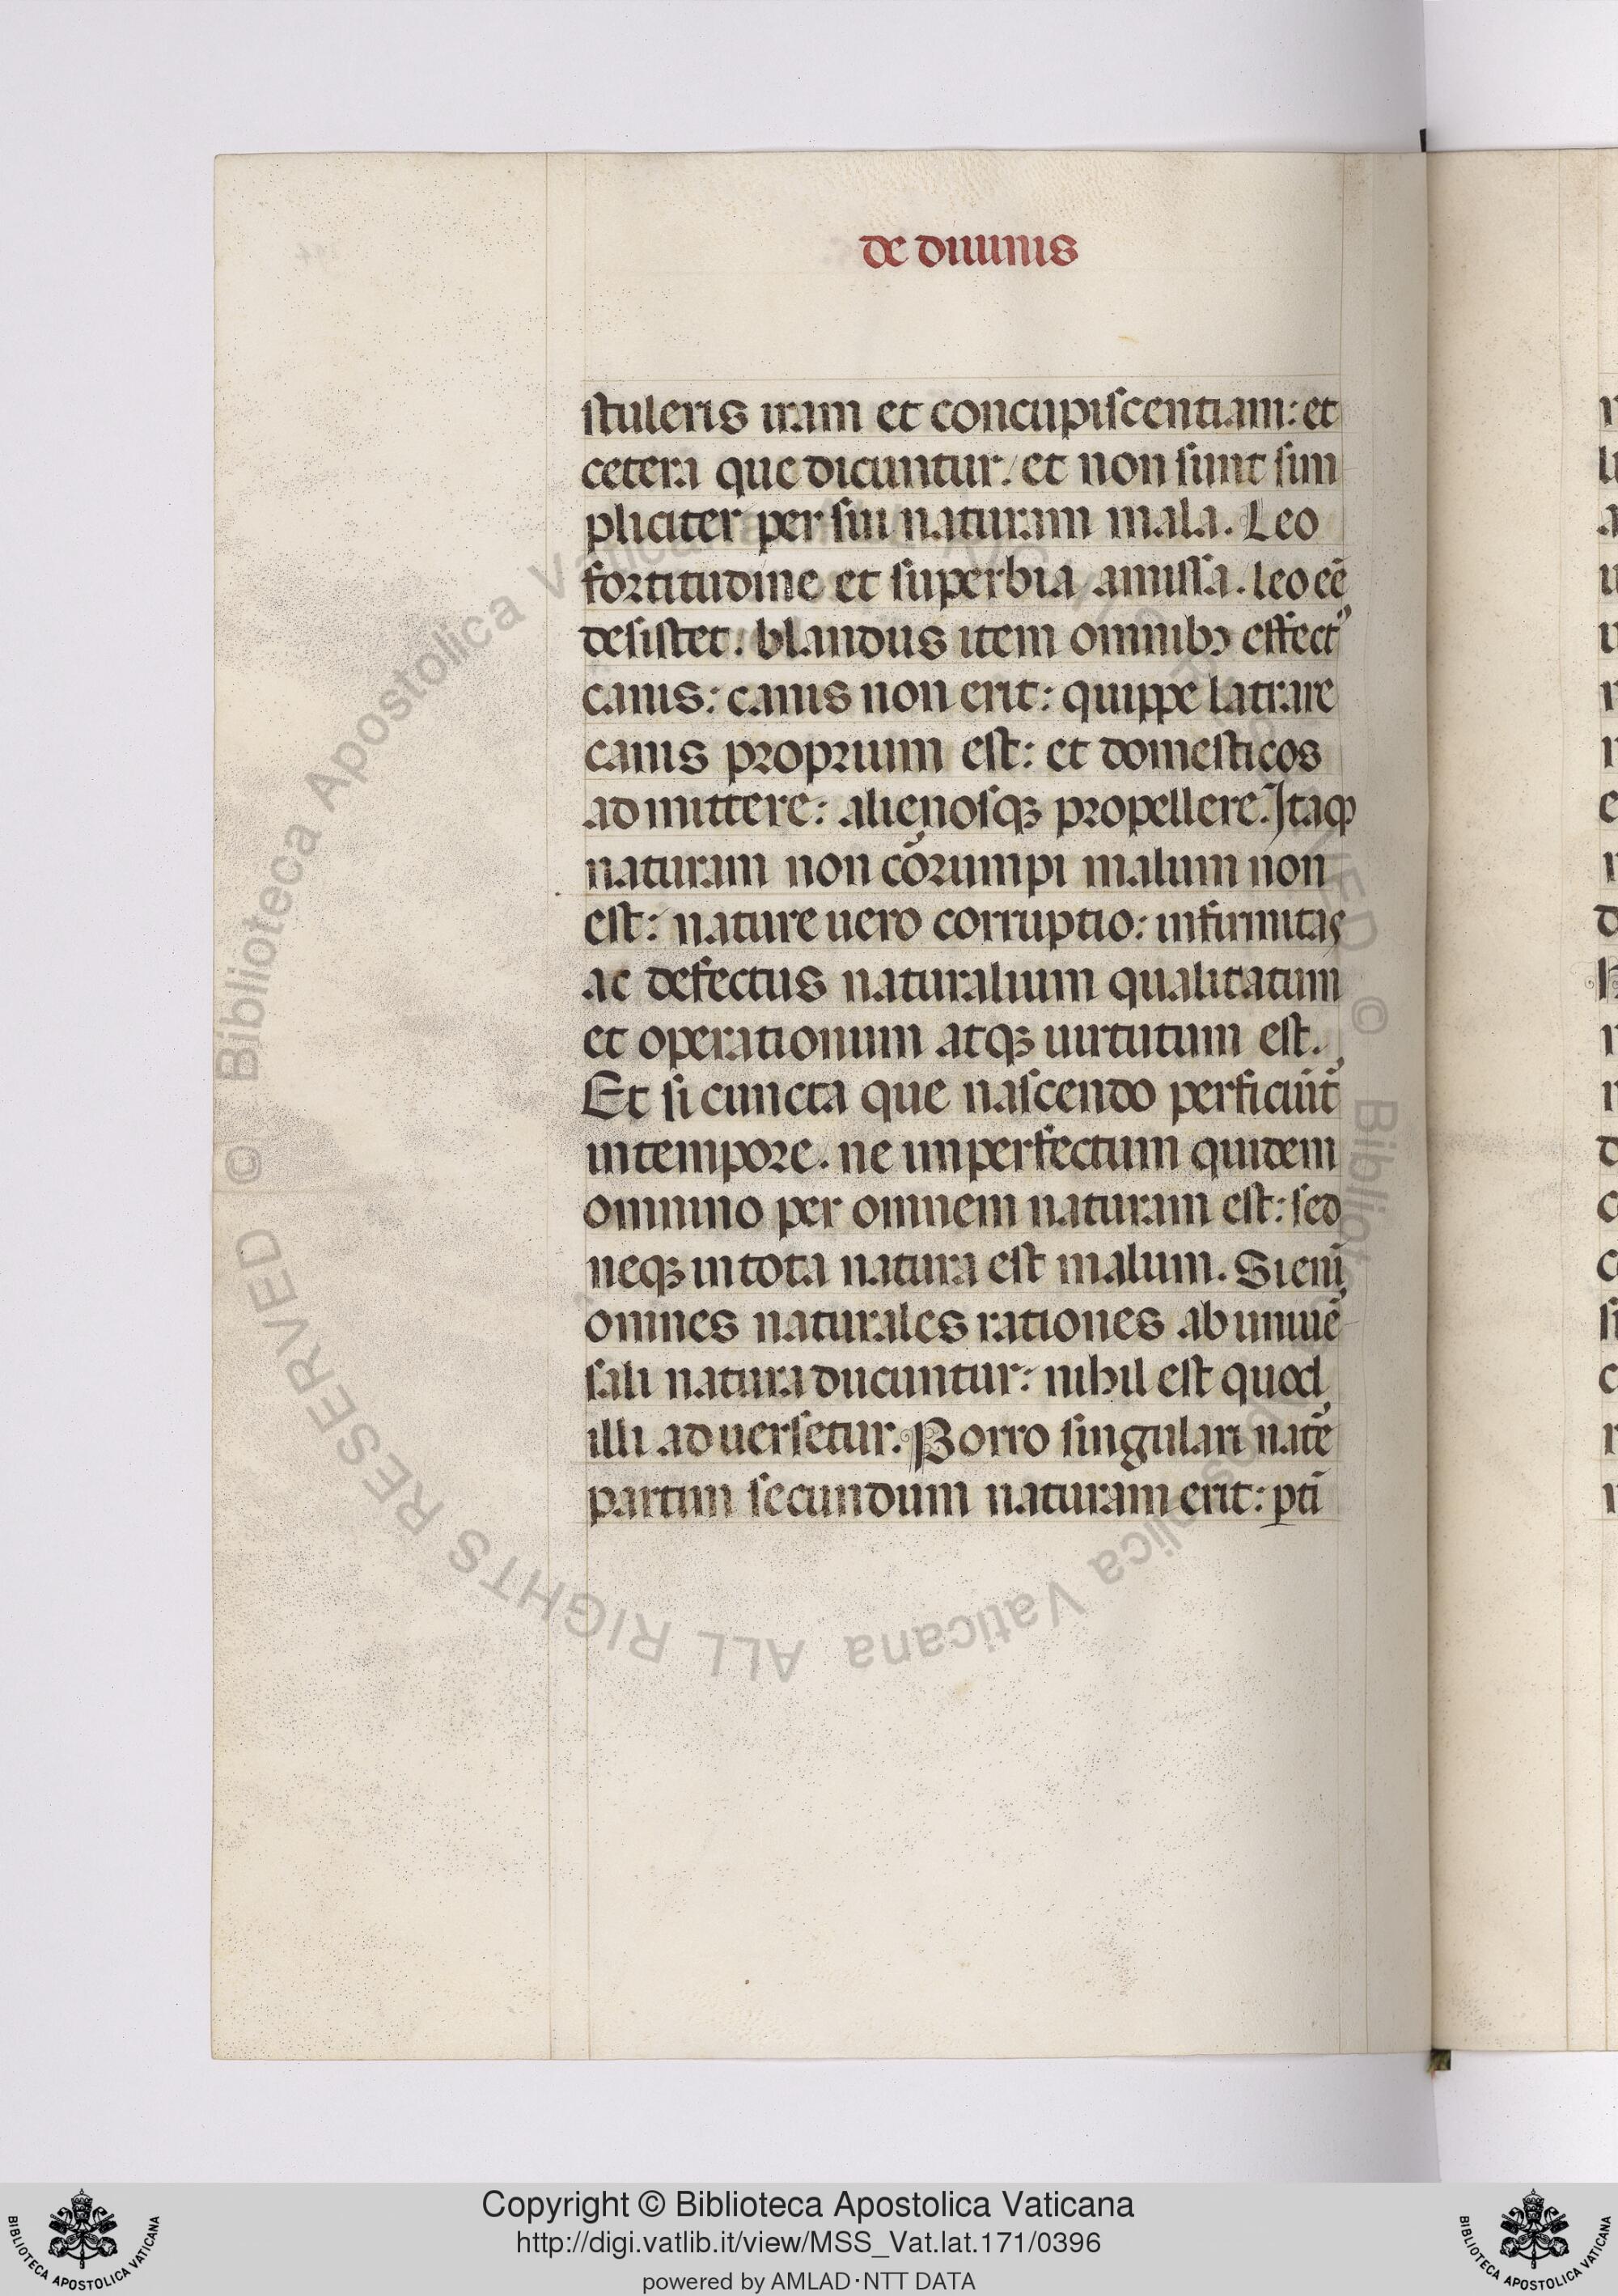 de diuinis
stuleris iram et concupiscentiam: et
cetera que dicuntur: et non sunt sim
pliciter per sui naturam mala. Leo
fortitudine et superbia amissa. leo eē
desistet: blandus item omnibꝫ effectꝰ
canis: canis non erit: quippe latrare
canis proprium est: et domesticos
admittere: alienosqꝫ propellere. Itaqꝫ
naturam non cōrumpi malum non
est: nature uero corruptio: infirmitas
ac defectus naturalium qualitatum
et operationum atqꝫ uirtutum est.
Et si cuncta que nascendo perficiūt᷑
in tempore. ne imperfectum quidem
omnino per omnem naturam est: sed
neqꝫ in tota natura est malum. Si enī
omnes naturales rationes ab uniuē
sali natura ducuntur: nihil est quod
illi aduersetur. Porro singulari nat᷑e
partim secundum naturam erit: ꝑtī
© Biblioteca Apostolica Vaticana ALL RIGHTS RESERVED
© Biblioteca Apostolica Vaticana ALL RIGHTS RESERVED
Copyright © Biblioteca Apostolica Vaticana
http://digi.vatlib.it/view/MSS_Vat.lat.171/0396
powered by AMLAD·NTT DATA
BIBLIOTECA APOSTOLICA VATICANA
BIBLIOTECA APOSTOLICA VATICANA